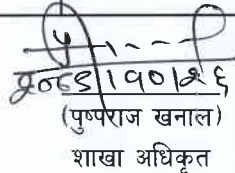 २०८१।१०।२६
(पुष्पराज खनाल)
शाखा अधिकृत